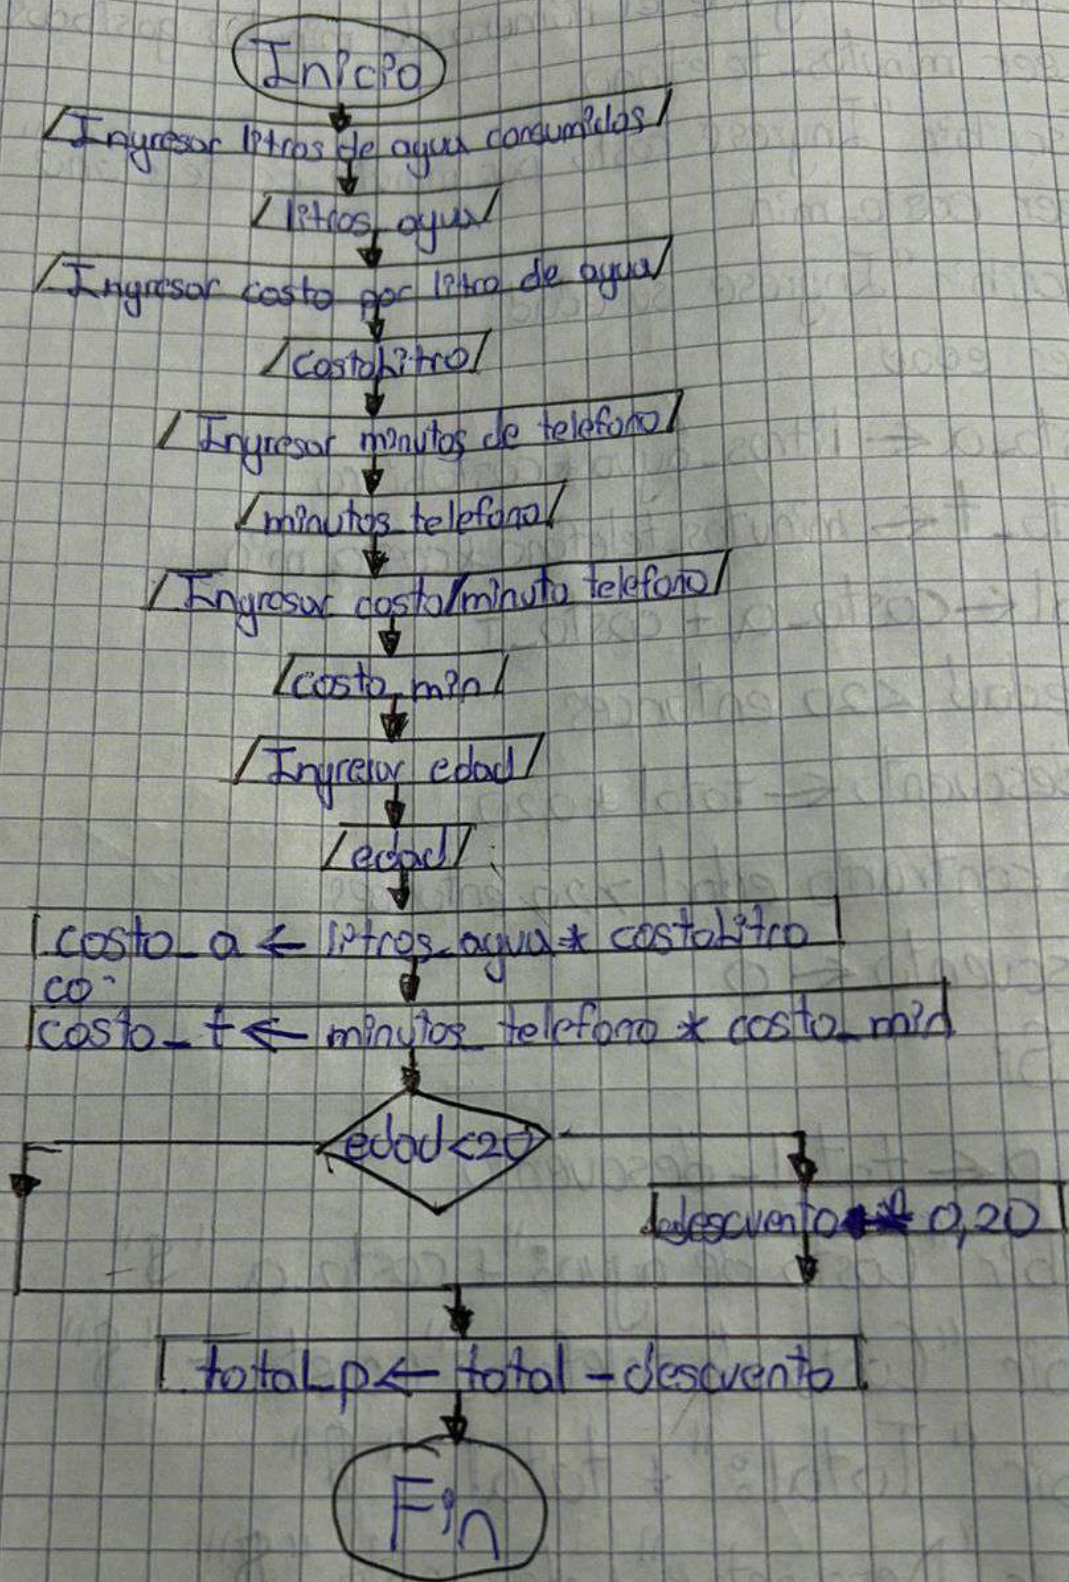 Inicio
Ingresar litros de agua consumidos
litros_agua
Ingresar costo por litro de agua
CostoLitro
Ingresar minutos de telefono
minutos_telefono
Ingresar costo/minuto telefono
costo_min
Ingresar edad
edad
costo_a ← litros_agua * costoLitro
co
costo_t ← minutos_telefono * costo_min
edad<20
descuento 0,20
total_p ← total - descuento
Fin